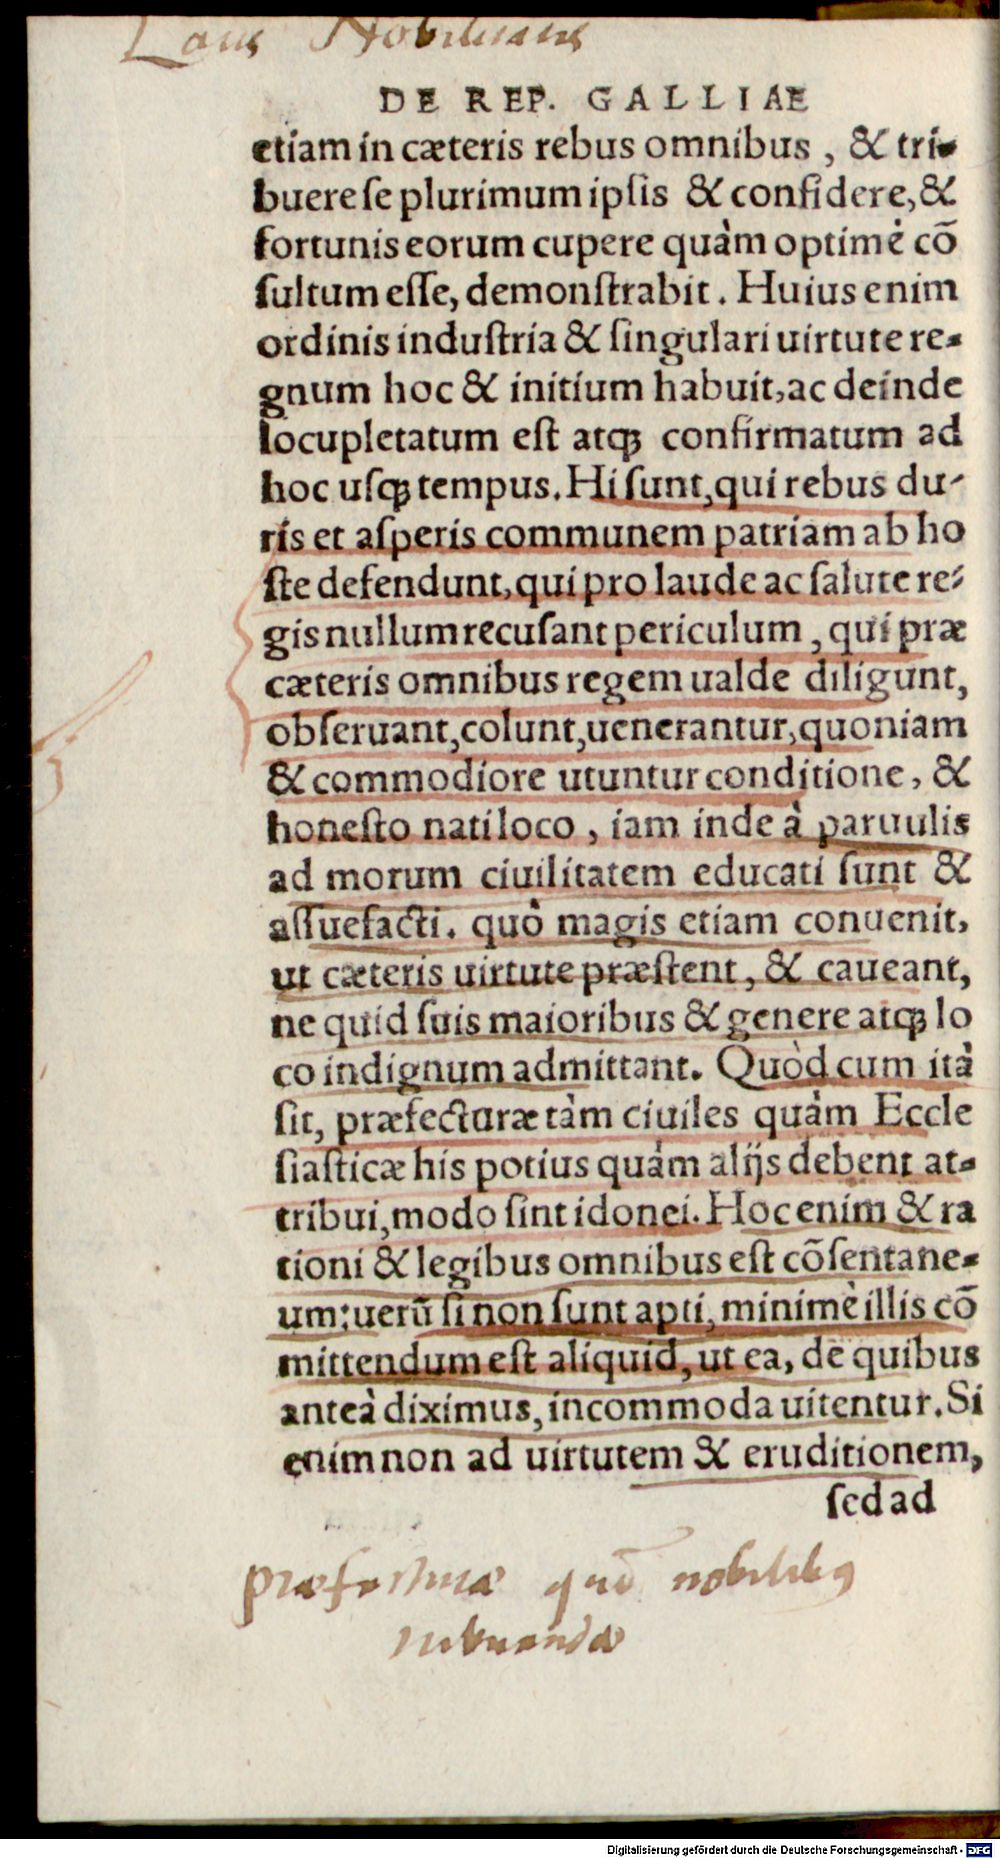 Laus Nobilitatis
DE REP. GALLIAE
etiam in cæteris rebus omnibus, & tri-
buere se plurimum ipsis & confidere, &
fortunis eorum cupere quàm optimè cõ
sultum esse, demonstrabit. Huius enim
ordinis industria & singulari uirtute re-
gnum hoc & initium habuit, ac deinde
locupletatum est atq; confirmatum ad
hoc usq; tempus. Hi sunt, qui rebus du-
ris et asperis communem patriam ab ho
ste defendunt, qui pro laude ac salute re-
gis nullum recusant periculum, qui præ
cæteris omnibus regem ualde diligunt,
obseruant, colunt, uenerantur, quoniam
& commodiore utuntur conditione, &
honesto nati loco, iam inde à paruulis
ad morum ciuilitatem educati sunt &
assuefacti. quò magis etiam conuenit,
ut cæteris uirtute præstent, & caueant,
ne quid suis maioribus & genere atq; lo
co indignum admittant. Quòd cum ità
sit, præfecturæ tàm ciuiles quàm Eccle
siasticæ his potius quàm alijs debent at-
tribui, modo sint idonei. Hoc enim & ra
tioni & legibus omnibus est cõsentane-
um: uerũ si non sunt apti, minimè illis cõ
mittendum est aliquid, ut ea, de quibus
anteà diximus, incommoda uitentur. Si
enim non ad uirtutem & eruditionem,
sed ad
præfecturæ nobilibus
tribuendæ
Digitalisierung gefördert durch die Deutsche Forschungsgemeinschaft - DFG